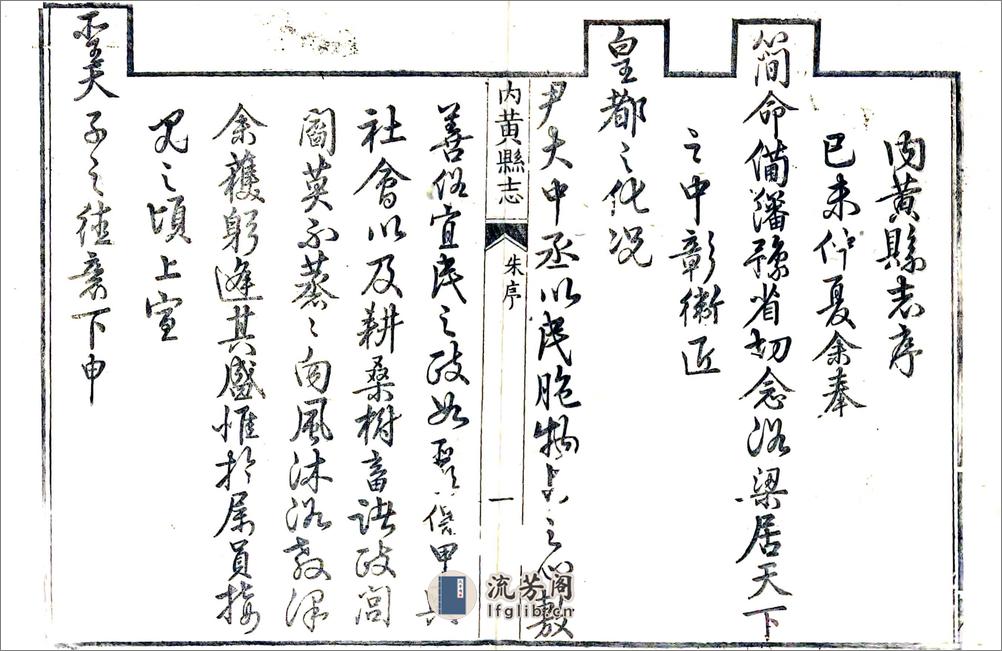 內黃縣志序
已未仲夏余奉
簡命備藩豫省切念洛梁居天下
之中彰衛匝
皇都之化况
尹大中丞以民胞物与之心敷
內黃縣志
朱序
一
善俗宜民之政如
保甲
社會以及耕桑樹畜諸政閭
閻莫不蒸〻向風沐浴教澤
余獲躬逢其盛惟於屬員接
見之頃上宣
聖天
子之德意下申
流芳阁
lfglib.cn